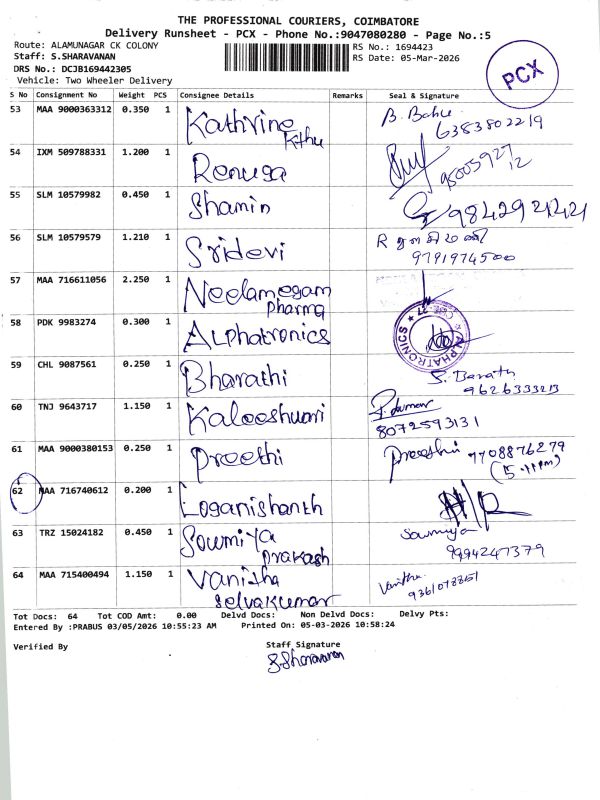 THE PROFESSIONAL COURIERS, COIMBATORE
Delivery Runsheet - PCX - Phone No.:9047080280 - Page No.:5
Route: ALAMUNAGAR CK COLONY
Staff: S.SHARAVANAN
DRS No.: DCJB169442305
Vehicle: Two Wheeler Delivery
RS No.: 1694423
RS Date: 05-Mar-2026
PCX
S No Consignment No Weight PCS Consignee Details Remarks Seal & Signature
53 MAA 9000363312 0.350 1 Kathrine B. Babu
6383802219
54 IXM 509788331 1.200 1 Renuga
55 SLM 10579982 0.450 1 Shamin 9842921421
56 SLM 10579579 1.210 1 Sridevi R
9791974500
57 MAA 716611056 2.250 1 Neelamegam
Pharma
58 PDK 9983274 0.300 1 Alphatronics
ALPHATRONICS
59 CHL 9087561 0.250 1 Bharathi S. Barath
9626333213
60 TNJ 9643717 1.150 1 Kaleeshwari
8072593131
61 MAA 9000380153 0.250 1 Preethi Preethi 7708876279
62 MAA 716740612 0.200 1 Loganishanth
63 TRZ 15024182 0.450 1 Sowmiya Sowmiya
Prakash 9994247379
64 MAA 715400494 1.150 1 Vanitha Vanitha
Selvakumar
Tot Docs: 64 Tot COD Amt: 0.00 Delvd Docs: Non Delvd Docs: Delvy Pts:
Entered By :PRABUS 03/05/2026 10:55:23 AM Printed On: 05-03-2026 10:58:24
Verified By Staff Signature
S.Sharavanan